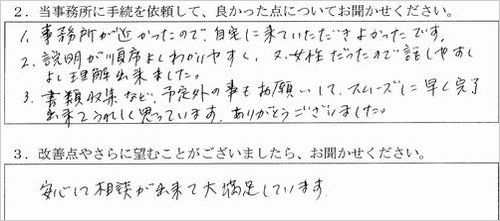 2．当事務所に手続を依頼して、良かった点についてお聞かせください。
1. 事務所が近かったので、自宅に来ていただきよかったです。
2. 説明が順序よくわかりやすく、又、女性だったので話しやすく
よく理解出来ました。
3. 書類収集など、予定外の事もお願いして、スムーズに早く完了
出来てうれしく思っています。ありがとうございました。
3．改善点やさらに望むことがございましたら、お聞かせください。
安心して相談が出来て大満足しています